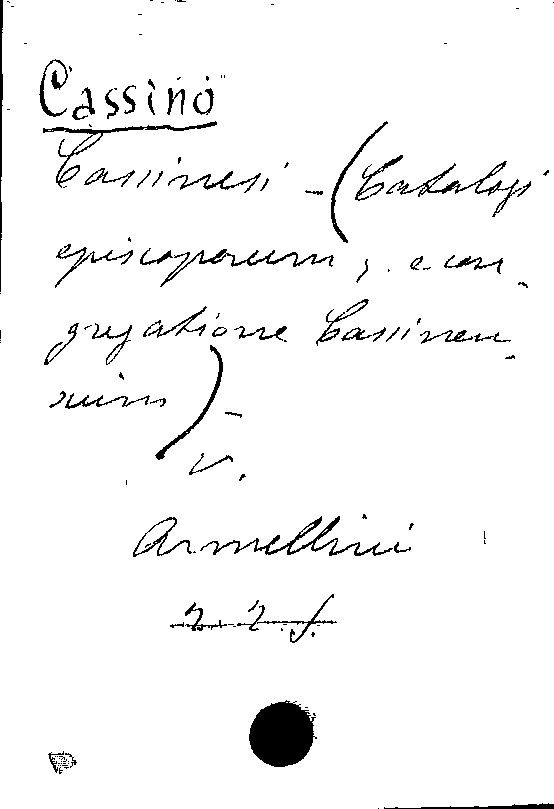 Cassino
Cassinesi - (Catalogi
episcoporum, e con-
gregatione Cassinen-
sium) -
V.
Armellini
2. 2. f.